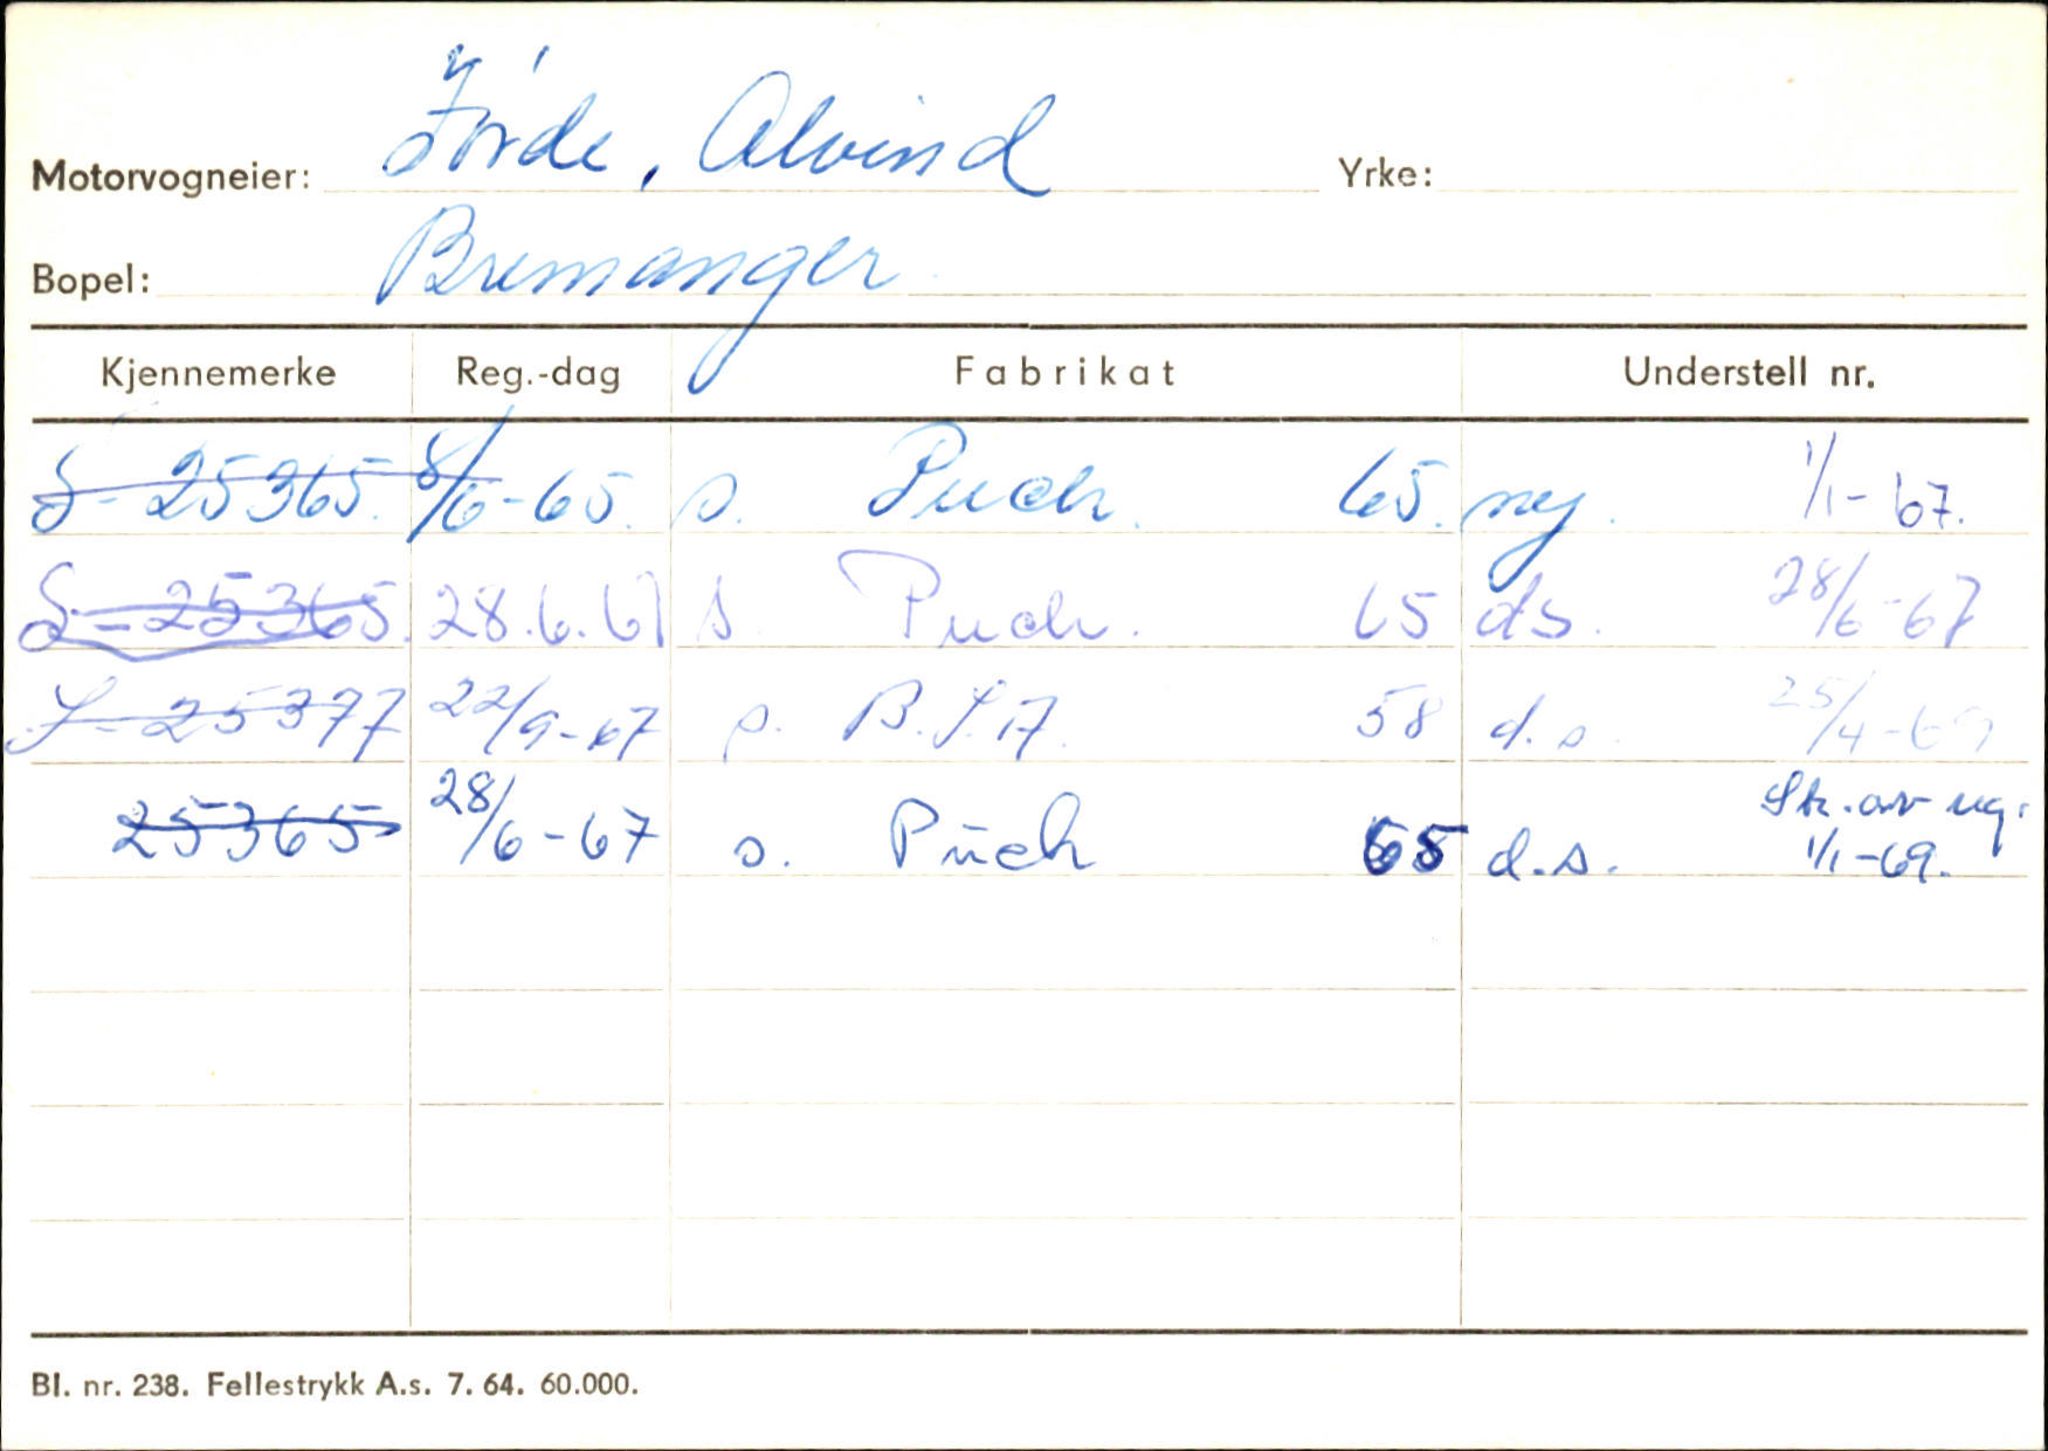 Motorvogneier: Førde, Alvind Yrke:
Bopel: Bremanger
Kjennemerke Reg.-dag Fabrikat Understell nr.
S-25365. 8/6-65. s. Puch. 65. ny. 1/1-67.
S-25365. 28.6.67 s. Puch. 65 ds. 28/6-67
S-25377 22/9-67 s. B.S.A. 58 d.s. 25/4-69
25365 28/6-67 s. Puch 65 d.s. Sk. av reg. 1/1-69.
Bl. nr. 238. Fellestrykk A.s. 7. 64. 60.000.